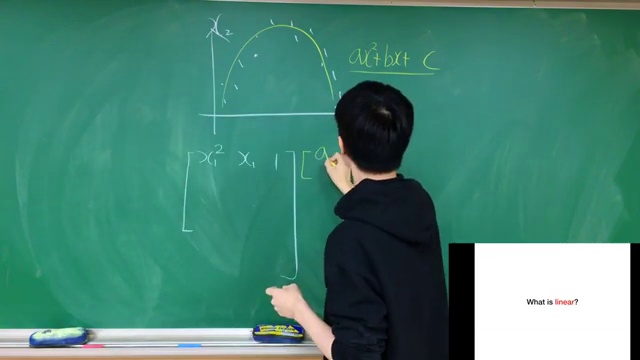 x₂
ax²+bx+ c
[x₁² x₁ 1] [a
What is linear?